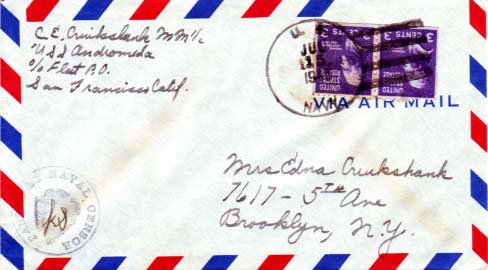 C.E. Cruikshank MM1/c
USS Andromeda
c/o Fleet P.O.
San Francisco Calif.
U.S.
JU
15
19
NAVY
3 CENTS 3
UNITED STATES POSTAGE
UNITED STATES POSTAGE
VIA AIR MAIL
Mrs Edna Cruikshank
7617 - 5TH Ave
Brooklyn, N.Y.
PASSED BY NAVAL CENSOR